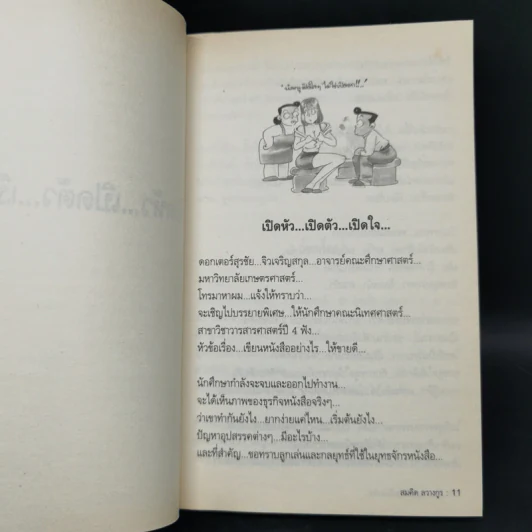 เปิดหัว...เปิดตัว...เปิดใจ...
ดอกเตอร์สุรชัย...จิวเจริญสกุล...อาจารย์คณะศึกษาศาสตร์...
มหาวิทยาลัยเกษตรศาสตร์...
โทรมาหาผม...แจ้งให้ทราบว่า...
จะเชิญไปบรรยายพิเศษ...ให้นักศึกษาคณะนิเทศศาสตร์...
สาขาวิชาวารสารศาสตร์ปี 4 ฟัง...
หัวข้อเรื่อง...เขียนหนังสืออย่างไร...ให้ขายดี...
นักศึกษากำลังจะจบและออกไปทำงาน...
จะได้เห็นภาพของธุรกิจหนังสือจริงๆ...
ว่าเขาทำกันยังไง...ยากง่ายแค่ไหน...เริ่มต้นยังไง...
ปัญหาอุปสรรคต่างๆ...มีอะไรบ้าง...
และที่สำคัญ...ขอทราบลูกเล่นและกลยุทธ์ที่ใช้ในยุทธจักรหนังสือ...
สมคิด ลวางกูร : 11